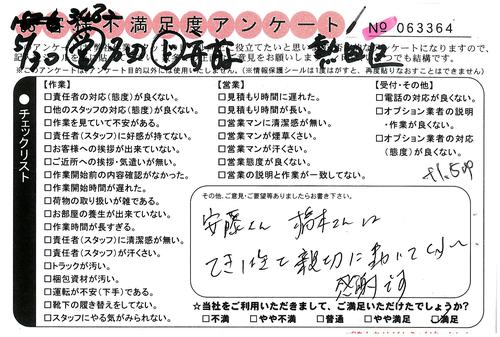 お客様不満足度アンケート
No 063364
5/30
【作業】
□責任者の対応(態度)が良くない。
□他のスタッフの対応(態度)が良くない。
□作業を見ていて不安がある。
□責任者(スタッフ)に好感が持てない。
□お客様への挨拶が出来ていない。
□ご近所への挨拶・気遣いが無い。
□作業開始前の内容確認がなかった。
□作業開始時間が遅れた。
□荷物の取り扱いが雑である。
□お部屋の養生が出来ていない。
□作業時間が長すぎる。
□責任者(スタッフ)に清潔感が無い。
□責任者(スタッフ)が汗くさい。
□トラックが汚い。
□梱包資材が汚い。
□運転が不安(下手)である。
□靴下の履き替えをしてない。
□スタッフにやる気がみられない。
【営業】
□見積もり時間に遅れた。
□見積もり時間が長い。
□営業マンに清潔感が無い。
□営業マンが煙草くさい。
□営業マンが汗くさい。
□営業態度が良くない。
□営業の説明と作業が一致してない。
【受付・その他】
□電話の対応が良くない。
□オプション業者の説明
・作業が良くない。
□オプション業者の対応
(態度)が良くない。
●チェックリスト
その他、ご意見・ご要望等ありましたらお書き下さい。
安藤くん 橋本くんは
てきぱきと親切に動いてくれて
感謝です
☆当社をご利用いただきまして、ご満足いただけたでしょうか?
□不満 □やや不満 □普通 □やや満足 □満足